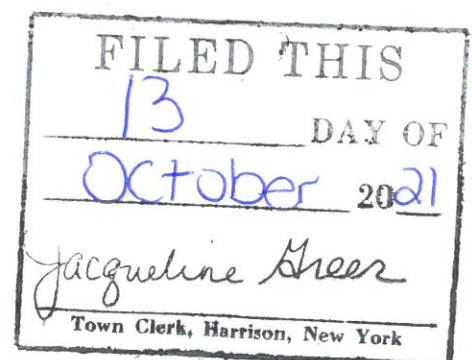 FILED THIS
13 DAY OF
October 2021
Jacqueline Greer
Town Clerk, Harrison, New York